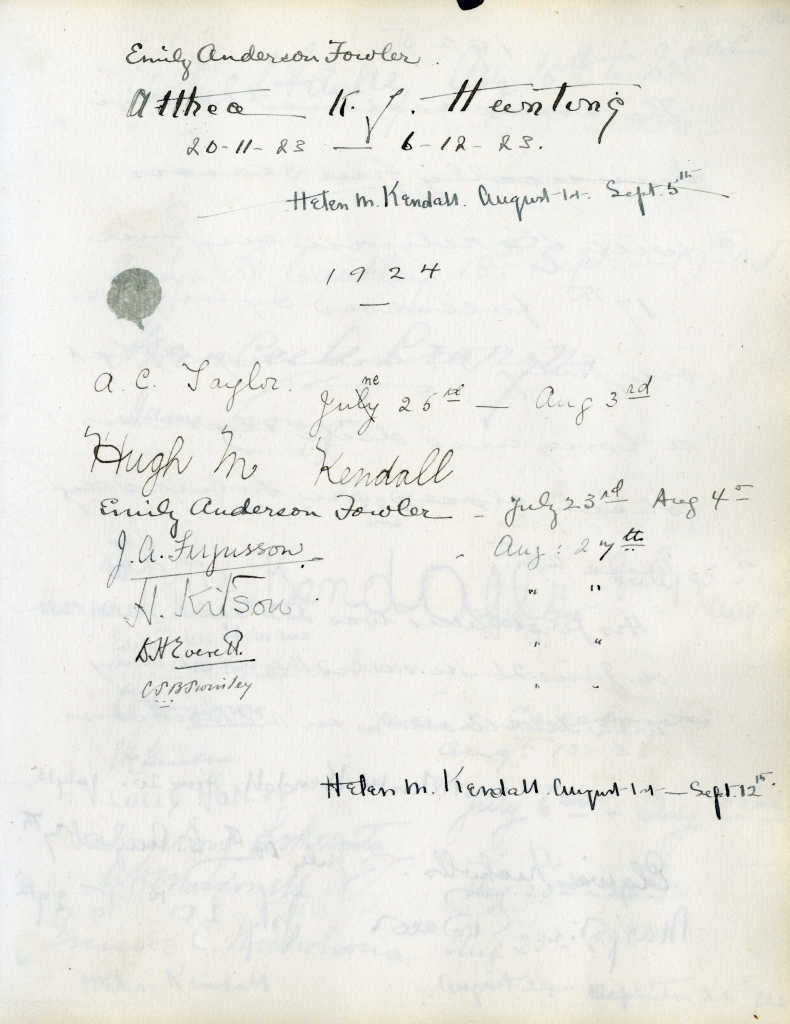 Emily Anderson Fowler.
Althea K. J. Hunting
20-11-23 — 6-12-23.
Helen M. Kendall. August 1st. Sept. 5th
1924
A. C. Taylor. July 26th — Aug 3rd
Hugh M Kendall
Emily Anderson Fowler - July 23rd Aug 4th
J. A. Fergusson. - Aug: 27th
H. Kitson. " "
D. H. Everett. " "
" "
Helen M. Kendall. August 1st — Sept. 12th.